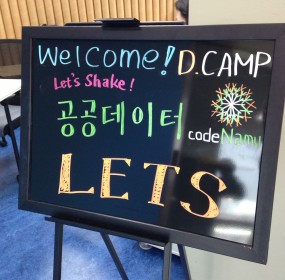 Welcome! D.CAMP
Let's Shake!
공공데이터
codeNamu
LETS